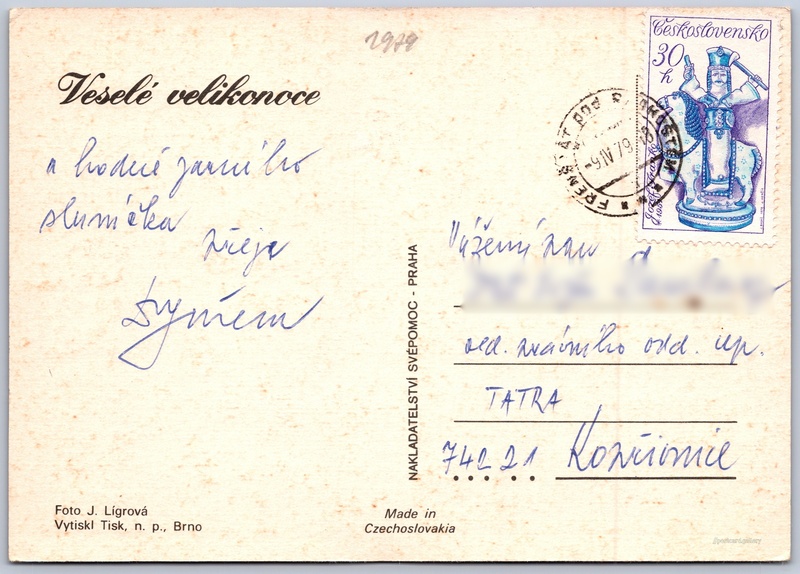 1979
Československo
30
h
Veselé velikonoce
FRENŠTÁT POD RADHOŠTĚM
-9.IV.79-18
a hodně jarního
sluníčka
přeje
Vážený pan
ved. právního odd. np.
TATRA
742 21 Kopřivnice
NAKLADATELSTVÍ SVÉPOMOC - PRAHA
Foto J. Lígrová
Vytiskl Tisk, n. p., Brno
Made in
Czechoslovakia